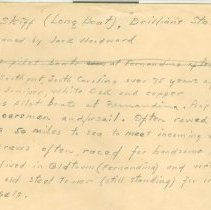 Skiff (Long Boat). Brilliant Sta
owned by Jack Woodward
pilot boats at Fernandina
South Carolina over 75 years a
Juniper, White Oak and copper
s pilot boats at Fernandina.
oarsmen and sail. Often rowed
so miles to sea to meet incoming
crews often raced for handsome
lived in Oldtown (Fernandina) and
old steel tower (still standing) for
sels.